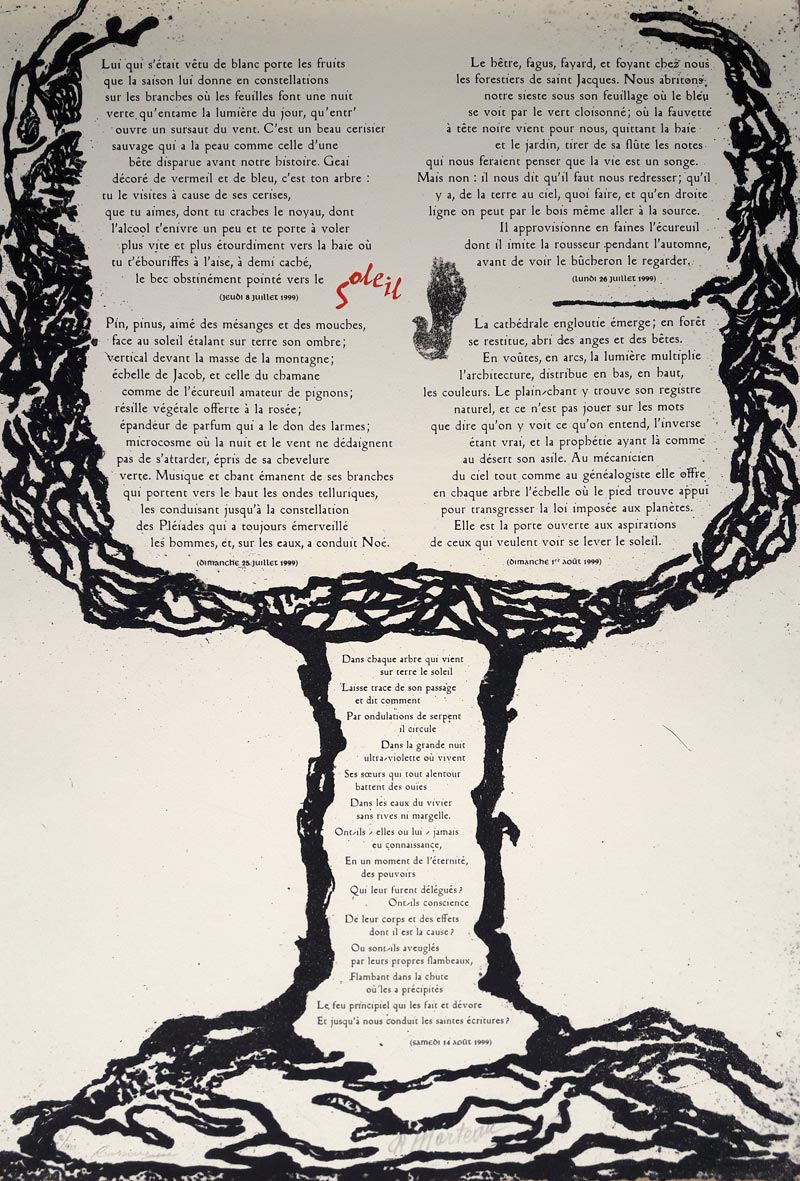 Lui qui s'était vêtu de blanc porte les fruits
que la saison lui donne en constellations
sur les branches où les feuilles font une nuit
verte qu'entame la lumière du jour, qu'entr'
ouvre un sursaut du vent. C'est un beau cerisier
sauvage qui a la peau comme celle d'une
bête disparue avant notre histoire. Geai
décoré de vermeil et de bleu, c'est ton arbre :
tu le visites à cause de ses cerises,
que tu aimes, dont tu craches le noyau, dont
l'alcool t'enivre un peu et te porte à voler
plus vite et plus étourdiment vers la haie où
tu t'ébouriffes à l'aise, à demi caché,
le bec obstinément pointé vers le
soleil
(jeudi 8 juillet 1999)
Le hêtre, fagus, fayard, et foyant chez nous
les forestiers de saint Jacques. Nous abritons
notre sieste sous son feuillage où le bleu
se voit par le vert cloisonné; où la fauvette
à tête noire vient pour nous, quittant la haie
et le jardin, tirer de sa flûte les notes
qui nous feraient penser que la vie est un songe.
Mais non : il nous dit qu'il faut nous redresser; qu'il
y a, de la terre au ciel, quoi faire, et qu'en droite
ligne on peut par le bois même aller à la source.
Il approvisionne en faines l'écureuil
dont il imite la rousseur pendant l'automne,
avant de voir le bûcheron le regarder.
(lundi 26 juillet 1999)
Pin, pinus, aimé des mésanges et des mouches,
face au soleil étalant sur terre son ombre;
vertical devant la masse de la montagne;
échelle de Jacob, et celle du chamane
comme de l'écureuil amateur de pignons;
résille végétale offerte à la rosée;
épandeur de parfum qui a le don des larmes;
microcosme où la nuit et le vent ne dédaignent
pas de s'attarder, épris de sa chevelure
verte. Musique et chant émanent de ses branches
qui portent vers le haut les ondes telluriques,
les conduisant jusqu'à la constellation
des Pléiades qui a toujours émerveillé
les hommes, et, sur les eaux, a conduit Noé.
(dimanche 25 juillet 1999)
La cathédrale engloutie émerge; en forêt
se restitue, abri des anges et des bêtes.
En voûtes, en arcs, la lumière multiplie
l'architecture, distribue en bas, en haut,
les couleurs. Le plain-chant y trouve son registre
naturel, et ce n'est pas jouer sur les mots
que dire qu'on y voit ce qu'on entend, l'inverse
étant vrai, et la prophétie ayant là comme
au désert son asile. Au mécanicien
du ciel tout comme au généalogiste elle offre
en chaque arbre l'échelle où le pied trouve appui
pour transgresser la loi imposée aux planètes.
Elle est la porte ouverte aux aspirations
de ceux qui veulent voir se lever le soleil.
(dimanche 1er août 1999)
Dans chaque arbre qui vient
sur terre le soleil
Laisse trace de son passage
et dit comment
Par ondulations de serpent
il circule
Dans la grande nuit
ultra-violette où vivent
Ses sœurs qui tout alentour
battent des ouïes
Dans les eaux du vivier
sans rives ni margelle.
Ont-ils - elles ou lui - jamais
eu connaissance,
En un moment de l'éternité,
des pouvoirs
Qui leur furent délégués?
Ont-ils conscience
De leur corps et des effets
dont il est la cause?
Ou sont-ils aveuglés
par leurs propres flambeaux,
Flambant dans la chute
où les a précipités
Le feu principiel qui les fait et dévore
Et jusqu'à nous conduit les saintes écritures?
(samedi 14 août 1999)